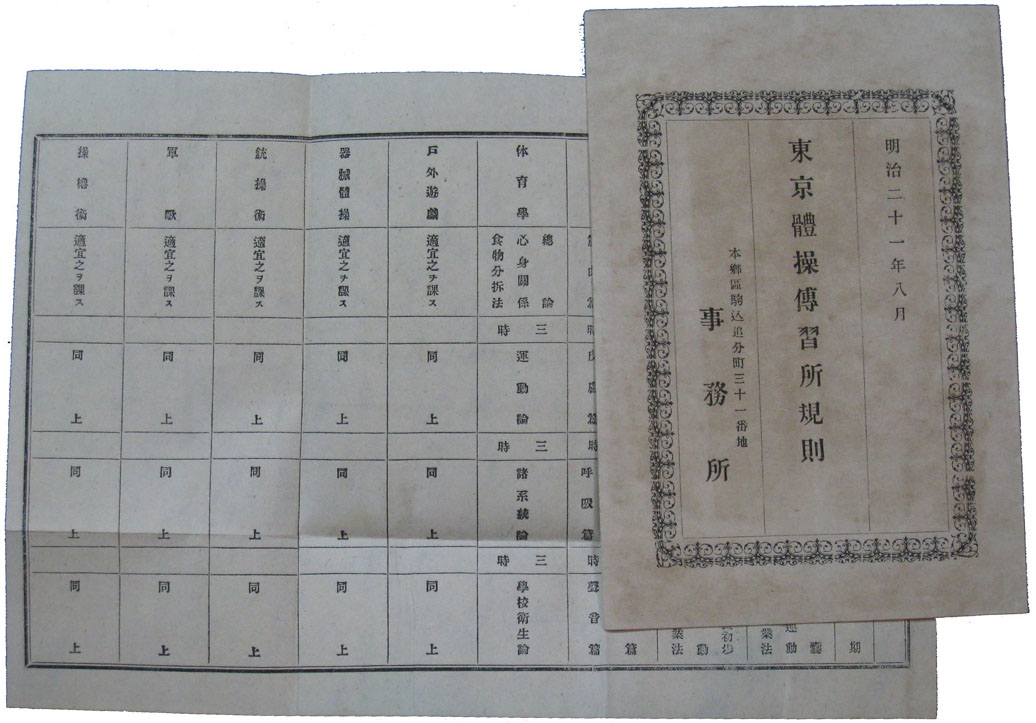 明治二十一年八月
東京體操傳習所規則
本鄕區駒込追分町三十一番地
事務所
期
運動
業法
動
業法
篇
時
篇
時
呼吸篇
時
聲音篇
休育學
總論
心身關係
食物分拆法
三時
運動論
三時
諸系統論
三時
學校衛生論
戶外遊戲
適宜之ヲ課ス
同上
同上
同上
器械體操
適宜之ヲ課ス
同上
同上
同上
銃操術
適宜之ヲ課ス
同上
同上
同上
軍歌
適宜之ヲ課ス
同上
同上
同上
操櫓術
適宜之ヲ課ス
同上
同上
同上